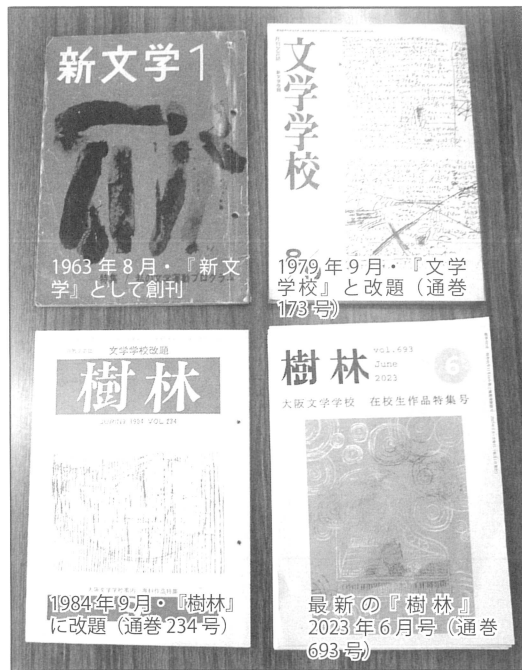 新文学1
1963年8月・『新文
学』として創刊
文学学校
1979年9月・『文学
学校』と改題（通巻
173号）
文学学校改題
樹林
1984年9月・『樹林』
に改題（通巻234号）
樹林
vol.693
June
2023
6
大阪文学学校 在校生作品特集号
最新の『樹林』
2023年6月号（通巻
693号）